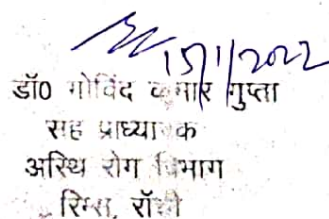 15/1/2022
डॉ0 गोविंद कुमार गुप्ता
सह प्राध्यापक
अस्थि रोग विभाग
रिम्स, राँची